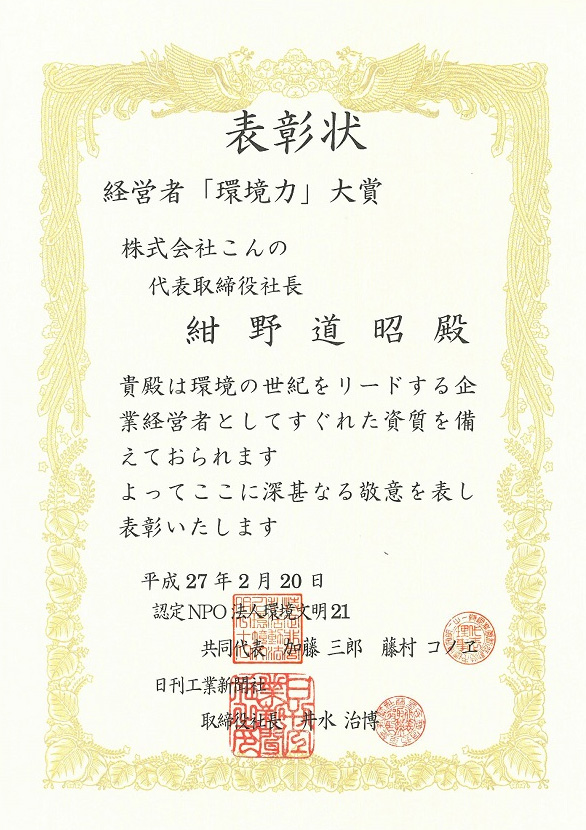 表彰状
経営者「環境力」大賞
株式会社こんの
代表取締役社長
紺野道昭殿
貴殿は環境の世紀をリードする企
業経営者としてすぐれた資質を備
えておられます
よってここに深甚なる敬意を表し
表彰いたします
平成27年2月20日
認定NPO法人環境文明21
共同代表 加藤 三郎 藤村 コノヱ
日刊工業新聞社
取締役社長 井水 治博